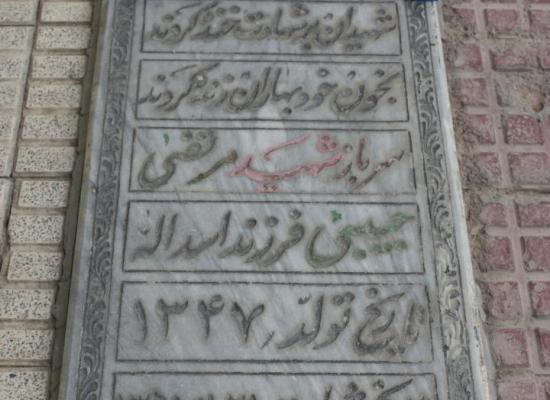 شهیدان بر شهادت خنده کردند
بخون خود بهاران زنده کردند
سرباز شهید مرتضی
حبیبی فرزند اسداله
تاریخ تولد ۱۳۴۷